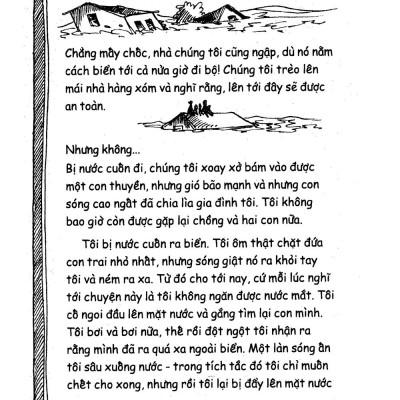 Chẳng mấy chốc, nhà chúng tôi cũng ngập, dù nó nằm
cách biển tới cả nửa giờ đi bộ! Chúng tôi trèo lên
mái nhà hàng xóm và nghĩ rằng, lên tới đây sẽ được
an toàn.
Nhưng không...
Bị nước cuốn đi, chúng tôi xoay xở bám vào được
một con thuyền, nhưng gió bão mạnh và nhưng con
sóng cao ngất đã chia lìa gia đình tôi. Tôi không
bao giờ còn được gặp lại chồng và hai con nữa.
Tôi bị nước cuốn ra biển. Tôi ôm thật chặt đứa
con trai nhỏ nhất, nhưng sóng giật nó ra khỏi tay
tôi và ném ra xa. Từ đó cho tới nay, cứ mỗi lúc nghĩ
tới chuyện này là tôi không ngăn được nước mắt. Tôi
cố ngoi đầu lên mặt nước và gắng tìm lại con mình.
Tôi bơi và bơi nữa, thế rồi đột ngột tôi nhận ra
rằng mình đã ra quá xa ngoài biển. Một làn sóng ấn
tôi sâu xuống nước - trong tích tắc đó tôi chỉ muốn
chết cho xong, nhưng rồi tôi lại bị đẩy lên mặt nước